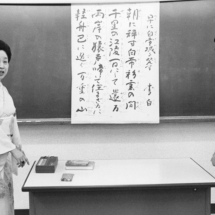 早に白帝城を発す 李白
朝に辞す白帝彩雲の間
千里の江陵一日にて還る
両岸の猿声啼いて住まざるに
軽舟已に過ぐ万重の山